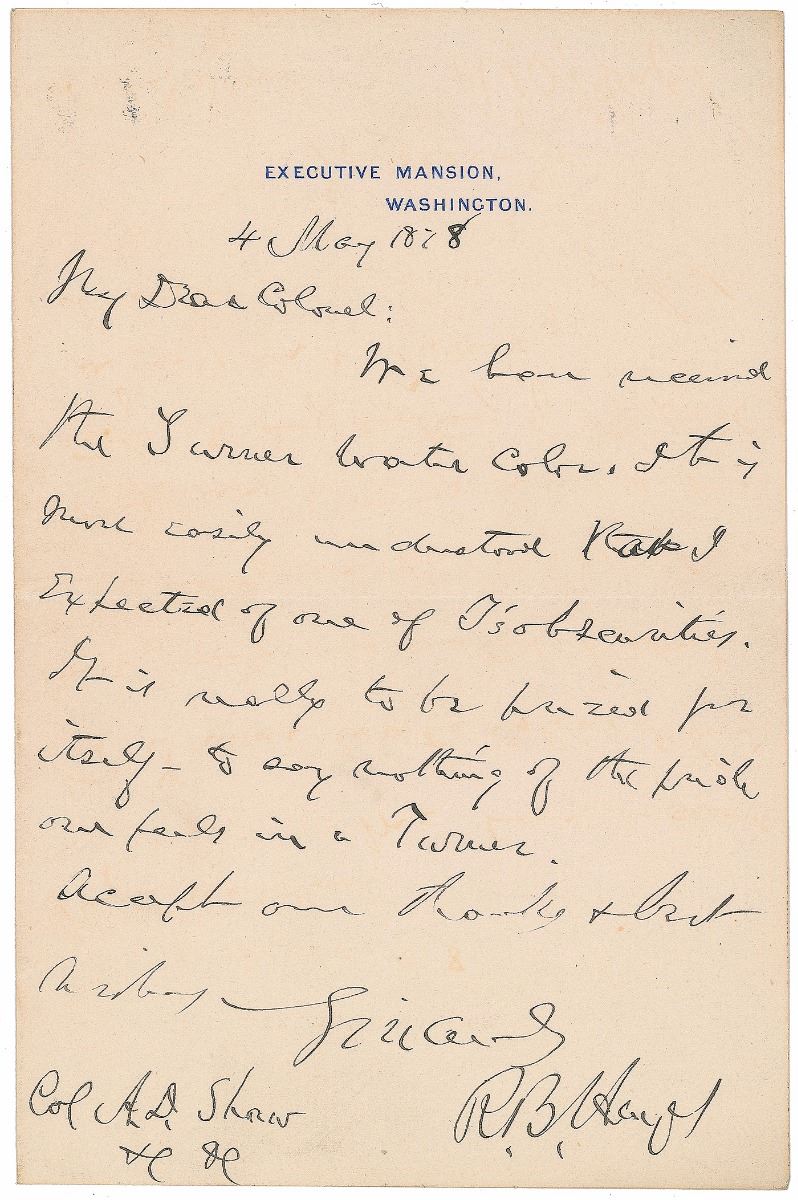 EXECUTIVE MANSION,
WASHINGTON.
4 May 1878
My Dear Colonel:
We have received
the Turner water color. It is
more easily understood than I
expected of one of T's obscurities.
It is really to be prized for
itself – to say nothing of the pride
one feels in a Turner.
Accept our thanks & best
wishes
Sincerely
R. B. Hayes
Col A. D. Shaw
&c &c